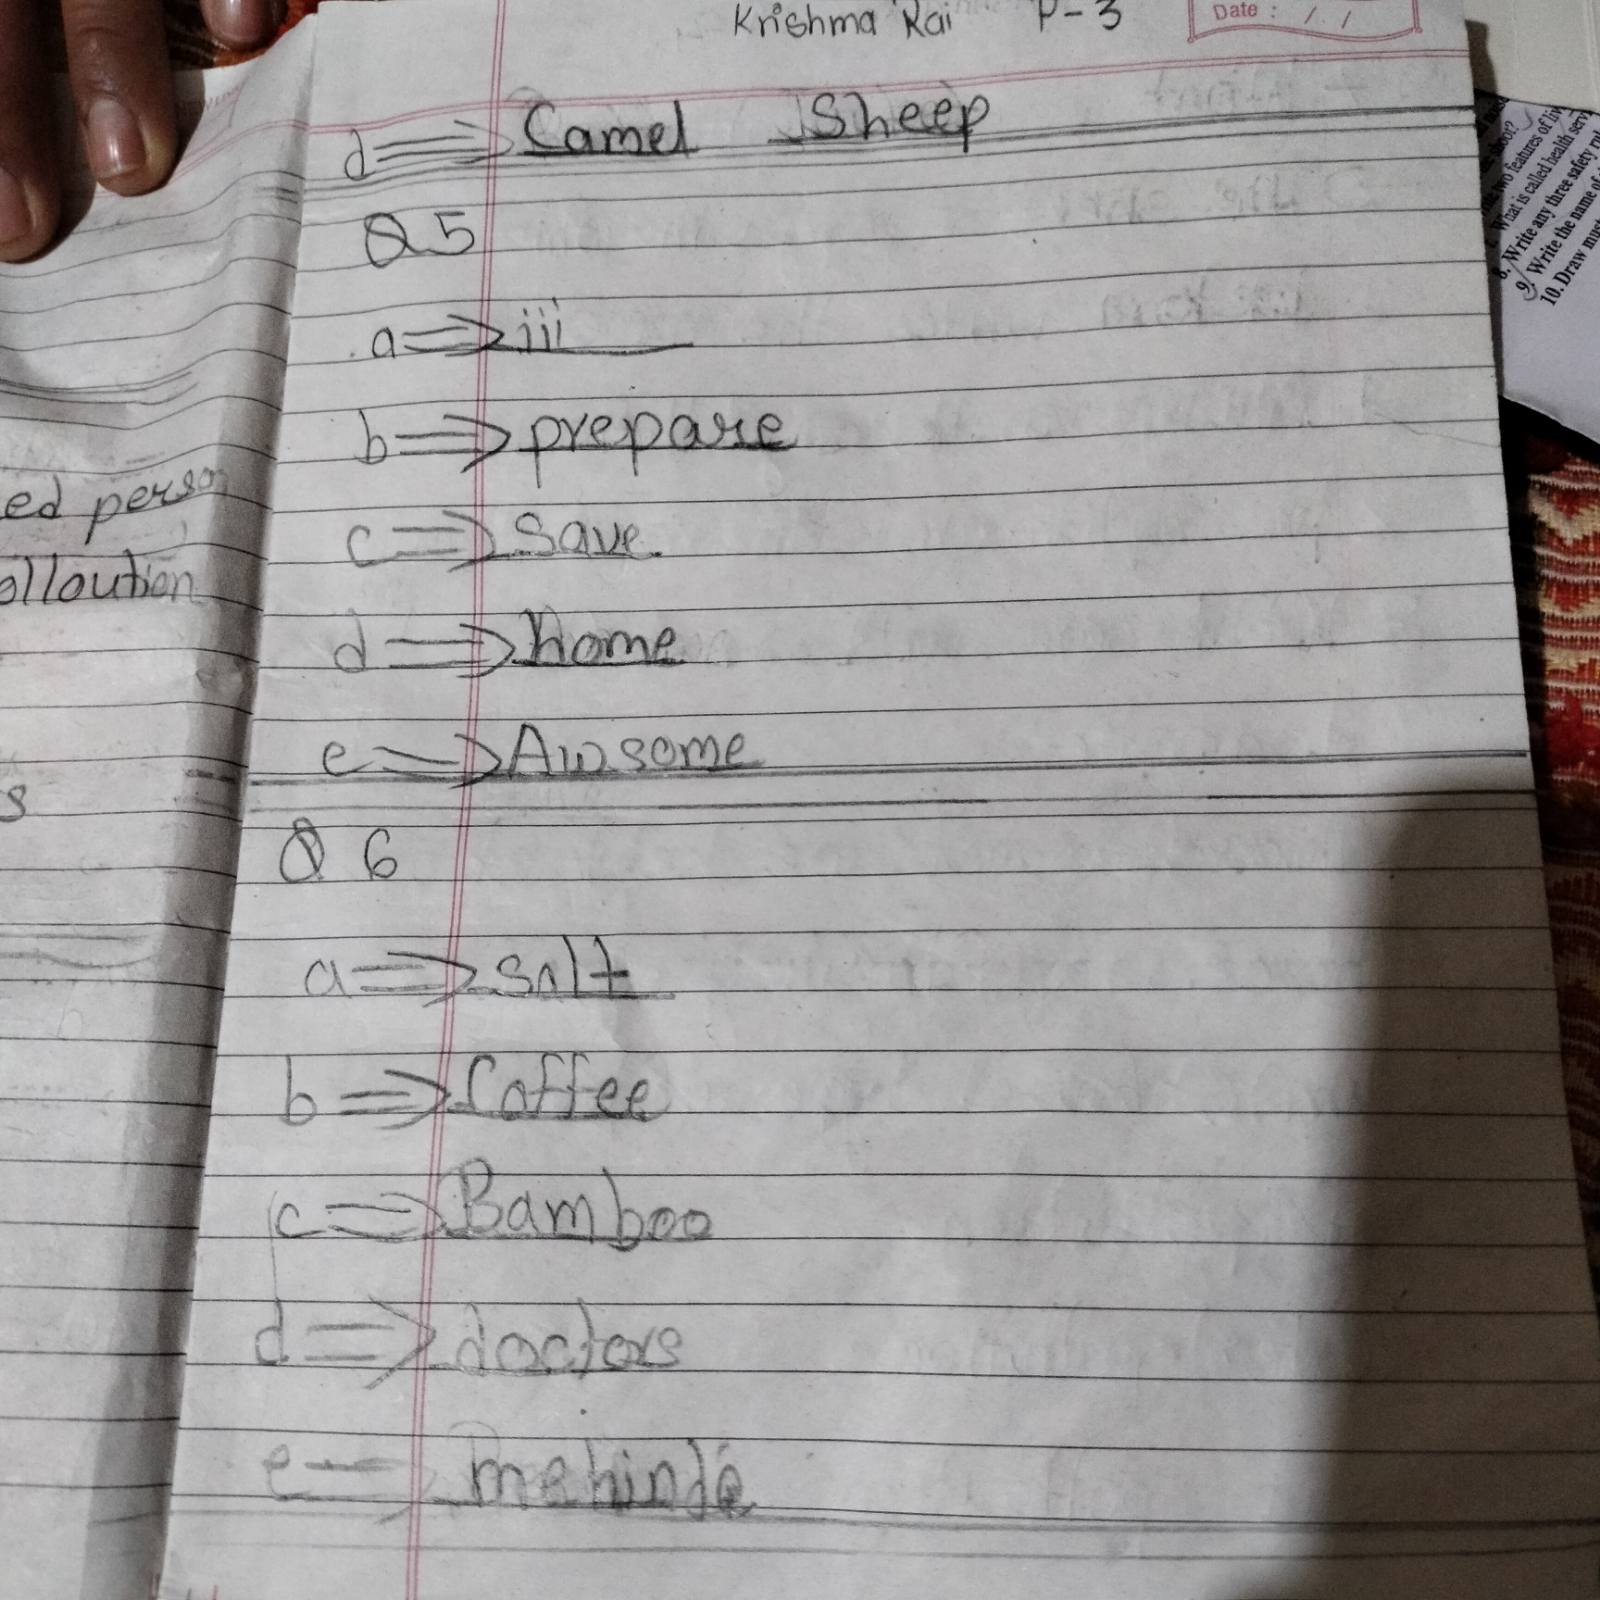 Krishma Rai P-3
Date : / /
d ⇒ Camel Sheep
Q 5
a ⇒ iii
b ⇒ prepare
c ⇒ Save
d ⇒ home
e ⇒ Awsome
Q 6
a ⇒ Salt
b ⇒ Coffee
c ⇒ Bamboo
d ⇒ doctors
e ⇒
ed person
olloution
s
two features of
What is called health serv
8. Write any three safety rul
9. Write the name of
10. Draw mus